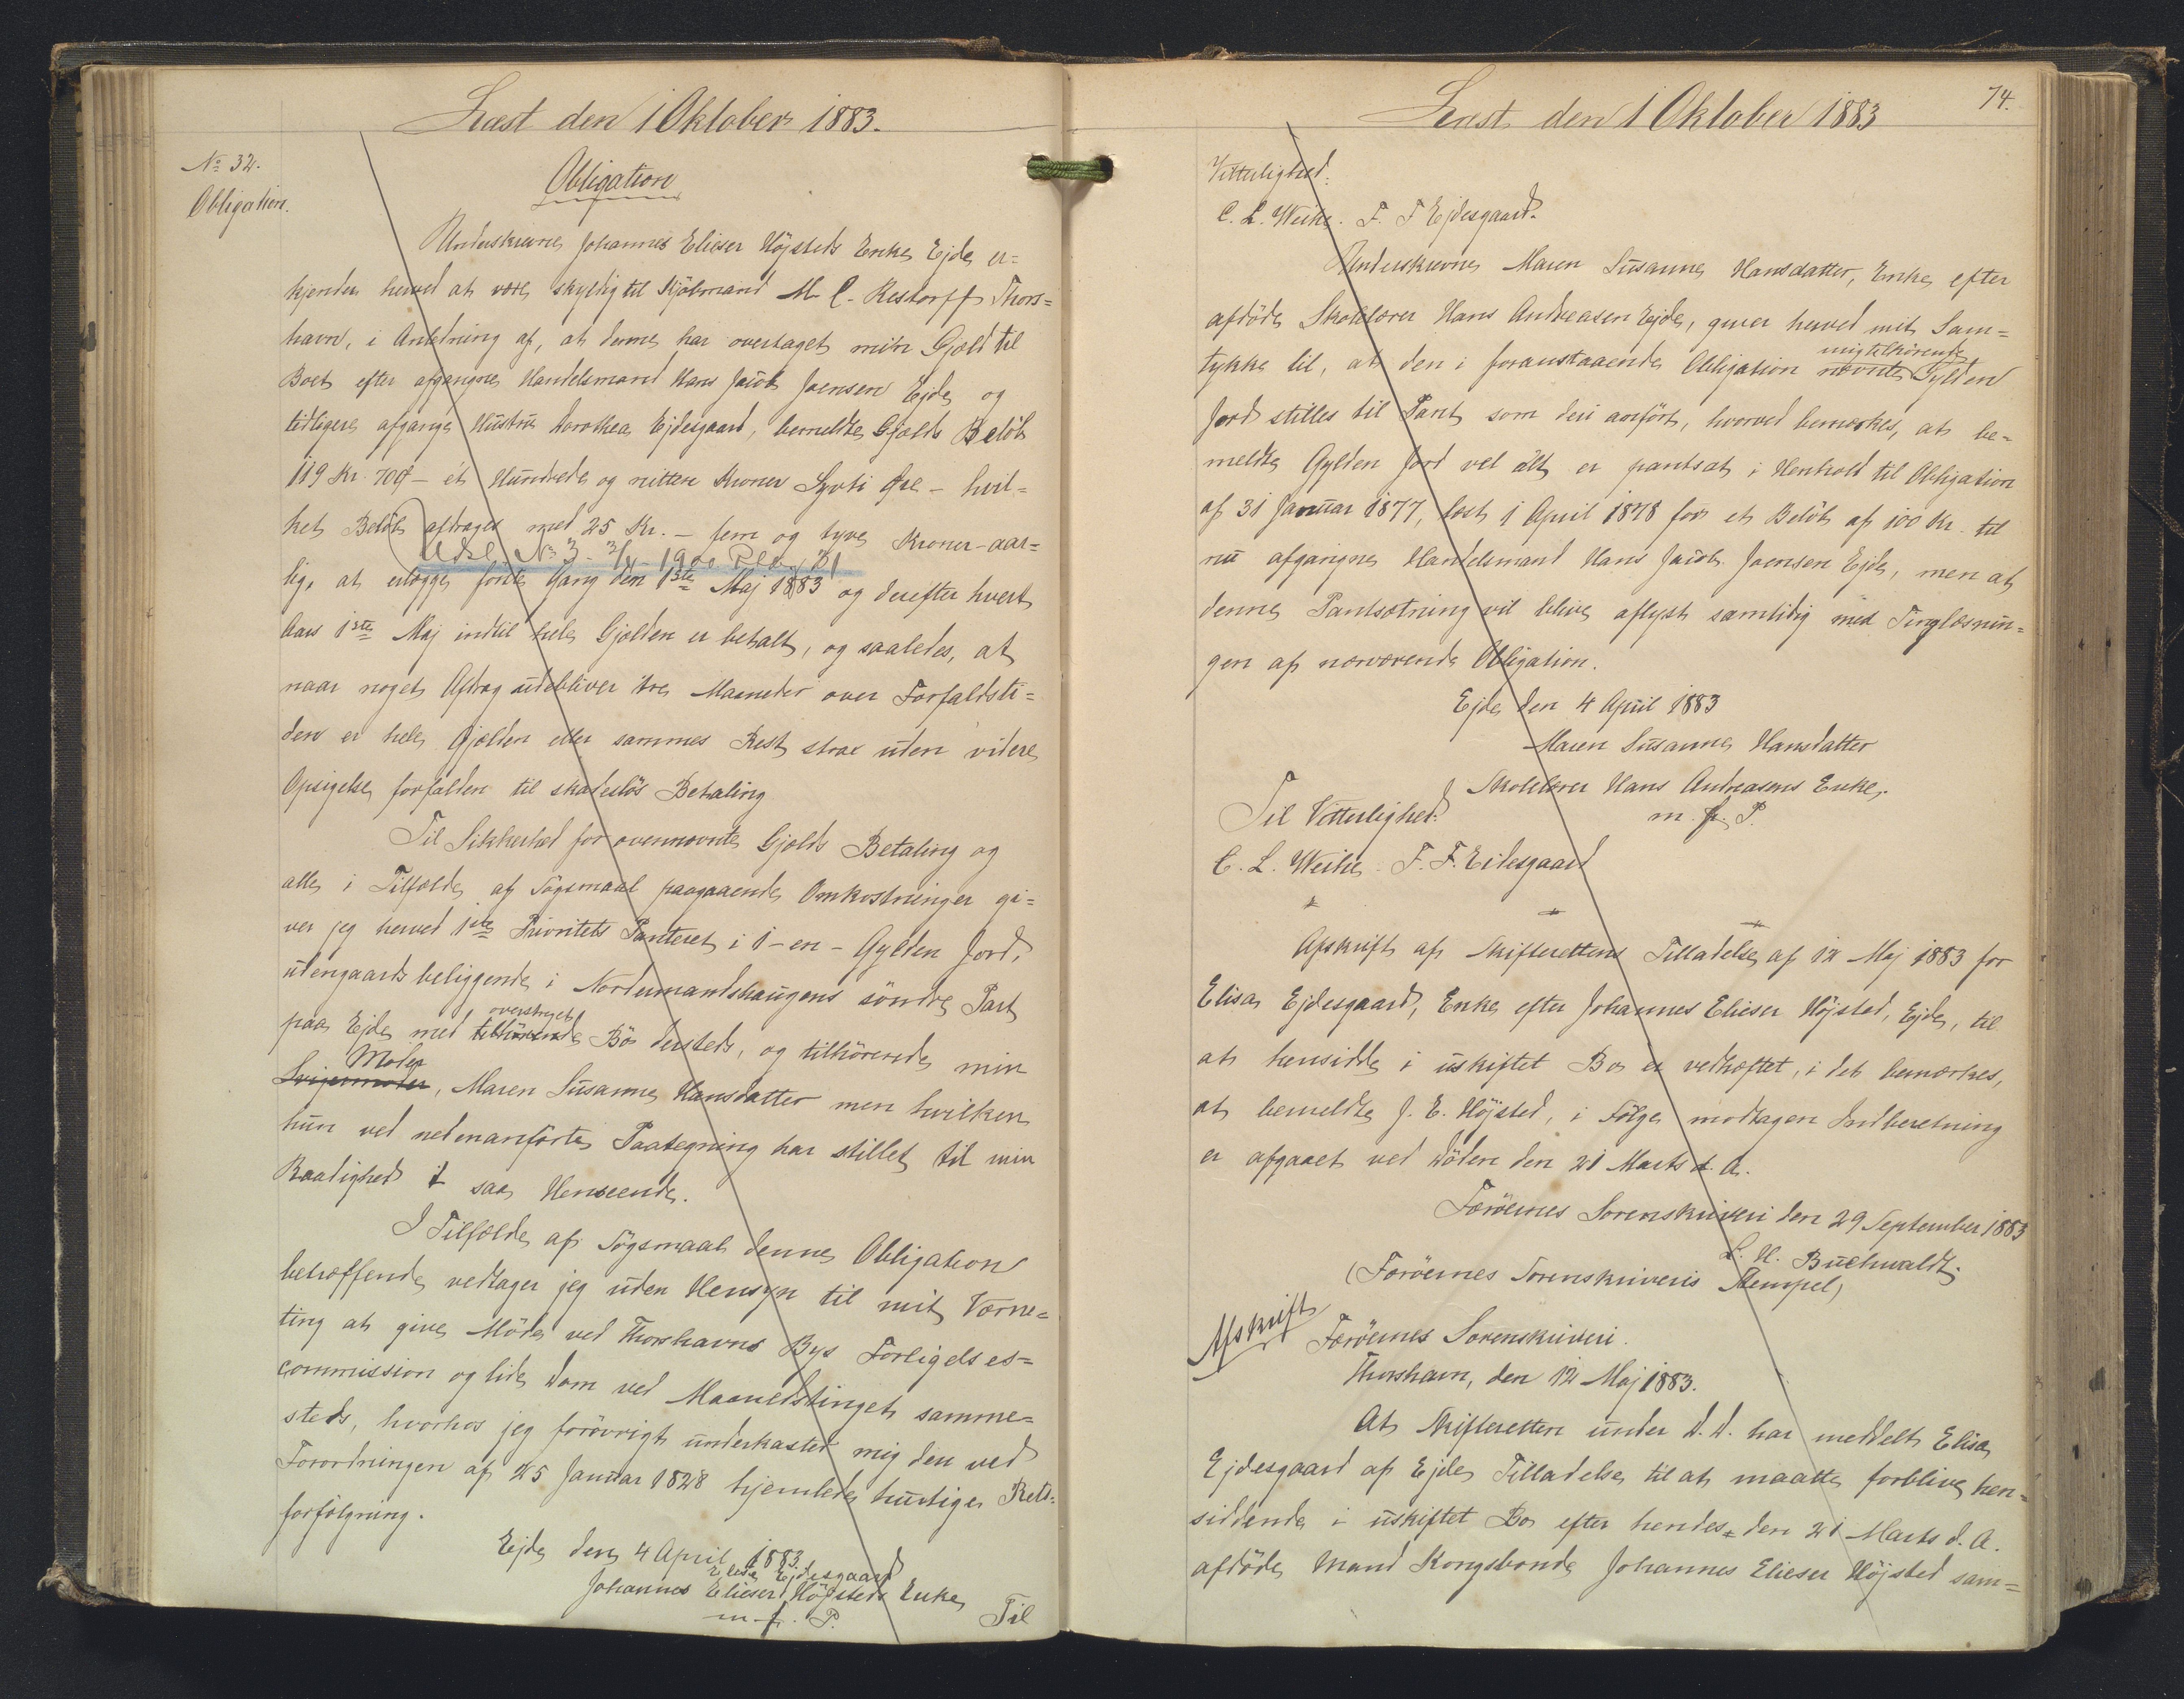 Læst den 1 Oktober 1883.
No 32.
Obligation.
Obligation
Underskrevne Johannes Elieser Højsteds Enke, Ejde er=
kjender herved at være skyldig til Kjøbmand M. C. Restorff Thors=
havn, i Anledning af, at denne har overtaget min Gjæld til
Boet efter afgangne Handelsmand Hans Jacob Joensen Ejde og
tidligere afgangne Hustru Dorothea Ejdesgaard, bemeldte Gjælds Beløb
119 Kr. 70 Ø – ét Hundrede og nitten Kroner Syvti Øre – hvil=
ket Beløb afdrages med 25 Kr. – fem og tyve Kroner – aar=
Udsl. No 3 – 2/4 1900
lig, at erlægge første Gang den 1ste Maj 1883 og derefter hvert
Aars 1ste Maj indtil hele Gjælden er betalt, og saaledes, at
naar noget Afdrag udebliver tre Maaneder over Forfaldsti=
den er hele Gjælden eller sammes Rest strax uden videre
Opsigelse forfalden til skadesløs Betaling
Til Sikkerhed for ovennævnte Gjælds Betaling og
alle i Tilfælde af Søgsmaal paagaaende Omkostninger gi=
ver jeg herved 1ste Prioritets Panteret i 1 – en – Gylden Jord,
udengaards beliggende i Nordumandshaugens søndre Part
overstreget
paa Ejde med tilhørende Bø dersteds, og tilhørende min
Moder
Svigermoder, Maren Susanne Hansdatter men hvilken
hun ved nedenanførte Paategning har stillet til min
Raadighed i saa Henseende.
I Tilfælde af Søgsmaal denne Obligation
betræffende vedtager jeg uden Hensyn til mit Værne=
ting at give Møde ved Thorshavns Bys Forligelses=
commission og lide Dom ved Maanedstinget samme=
steds, hvorhos jeg forøvrigt underkaster mig den ved
Forordningen af 25 Januar 1828 hjemlede hurtige Rets=
forfølgning.
Ejde den 4 April 1883
Elisa Ejdesgaard
Johannes Elieser Højsteds Enke
m. f. P.
Til
Læst den 1 Oktober 1883
74.
Vitterlighed:
C. L. Weihe. F. F Ejdesgaard.
Underskrevne Maren Susanne Hansdatter, Enke efter
afdøde Skolelærer Hans Andreasen Ejde, giver herved mit Sam=
mig tilhørende
tykke til, at den i foranstaaende Obligation nævnte Gylden
Jord stilles til Pant som deri anført, hvorved bemærkes, at be=
meldte Gylden Jord vel alt er pantsat i Henhold til Obligation
af 31 Januar 1877, læst 1 April 1878 for et Beløb af 100 Kr. til
nu afgangne Handelsmand Hans Jacob Joensen Ejde, men at
denne Pantsætning vil blive aflyst samtidig med Tinglæsnin=
gen af nærværende Obligation.
Ejde den 4 April 1883
Maren Susanne Hansdatter
Skolelærer Hans Andreasens Enke,
m. f. P.
Til Vitterlighed:
C. L. Weihe F. F. Eidesgaard
Afskrift af Skifterettens Tilladelse af 12 Maj 1883 for
Elisa Ejdesgaard, Enke efter Johannes Elieser Højsted, Ejde, til
at hensidde i uskiftet Bo er vedhæftet, i det bemærkes,
at bemeldte J. E. Højsted, i Følge modtagen Indberetning
er afgaaet ved Døden den 21 Marts d. A.
Færøernes Sorenskriveri den 29 September 1883
L. H. Buchwaldt
(Færøernes Sorenskriveris Stempel)
Afskrift
Færøernes Sorenskriveri.
Thorshavn, den 12 Maj 1883.
At Skifteretten under D. D. har meddelt Elisa
Ejdesgaard af Ejde Tilladelse til at maatte forblive hen=
siddende i uskiftet Bo efter hendes den 21 Marts d. A.
afdøde Mand Kongsbonde Johannes Elieser Højsted sam=